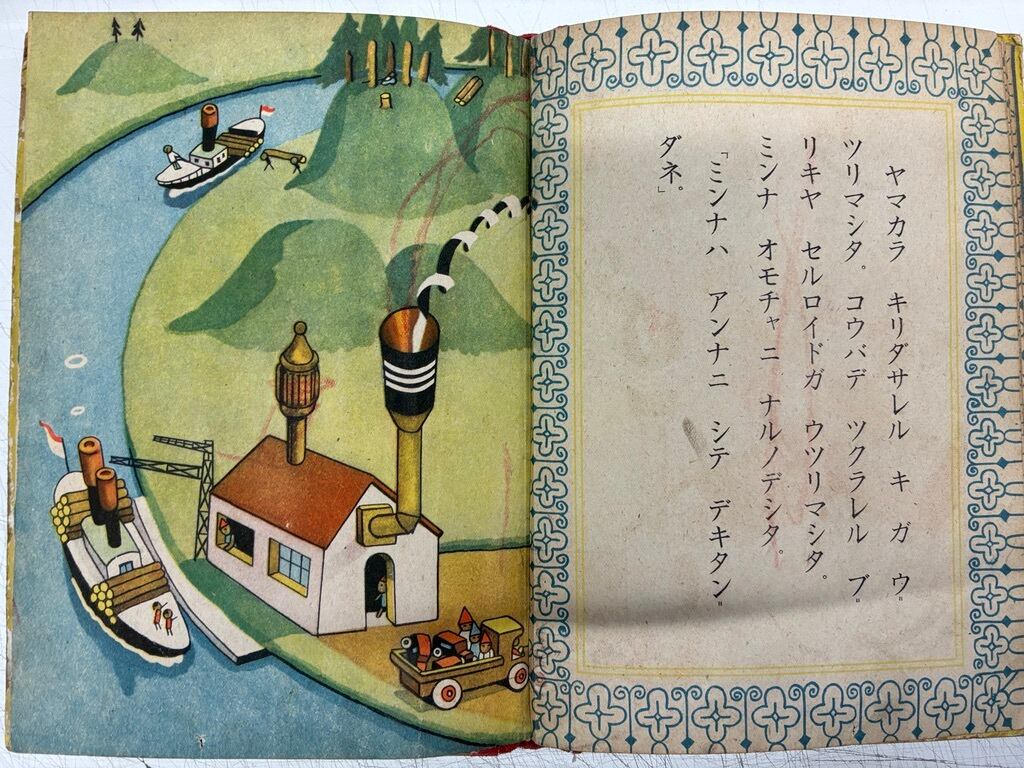 ヤマカラ キリダサレル キ ガ ウ゠
ツリマシタ。コウバデ ツクラレル ブ゠
リキヤ セルロイドガ ウツリマシタ。
ミンナ オモチャ ニ ナルノデシタ。
「ミンナハ アンナニ シテ デキタン゠
ダネ。」